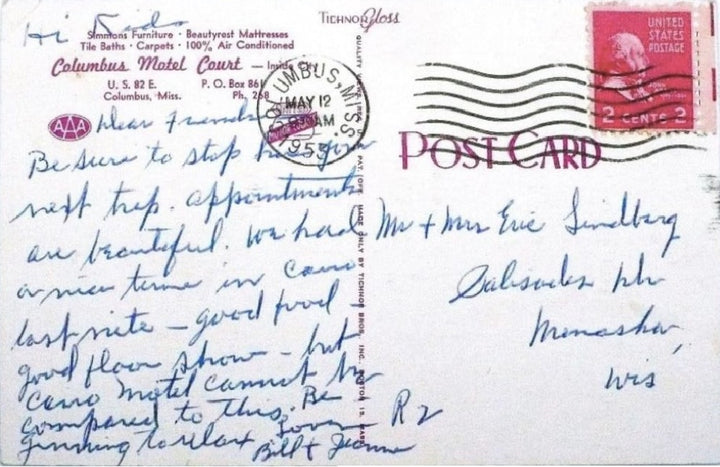 Hi Kids
Simmons Furniture • Beautyrest Mattresses
Tile Baths • Carpets • 100% Air Conditioned
Columbus Motel Court — Inside City
U. S. 82 E.    P. O. Box 861
Columbus, Miss.    Ph. 268
AAA
Dear Friends
Be sure to stop here
next trip. appointments
are beautiful. We had
a nice time in Cairo
last nite – good food –
good floor show – but
Cairo Motel cannot be
compared to this. Be
ginning to relax
Love
Bill + Jeanne
TICHNOR Gloss
MADE ONLY BY TICHNOR BROS., INC., BOSTON 15, MASS.
COLUMBUS, MISS.
MAY 12
AM
1955
UNITED
STATES
POSTAGE
2 CENTS 2
POST CARD
Mr + Mrs Eric Lindberg
Menasha,
Wis
R 2